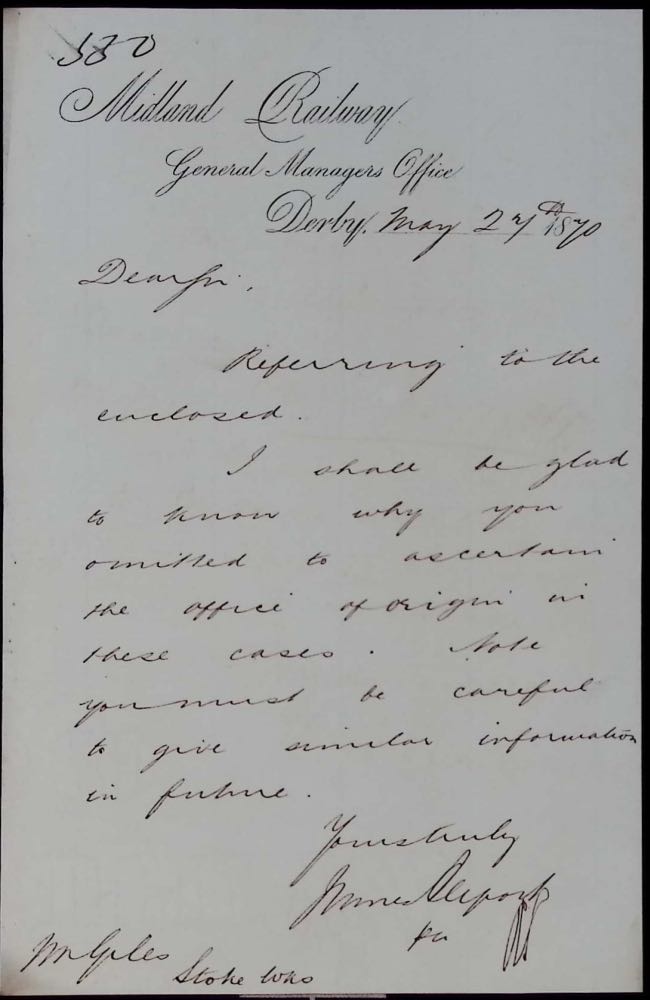 580
Midland Railway
General Managers Office
Derby, May 27th 1870
Dear Sir,
Referring to the
enclosed.
I shall be glad
to know why you
omitted to ascertain
the office of origin in
these cases. Note
you must be careful
to give similar information
in future.
Yours truly
James Allport
Mr Giles
Stoke Wks